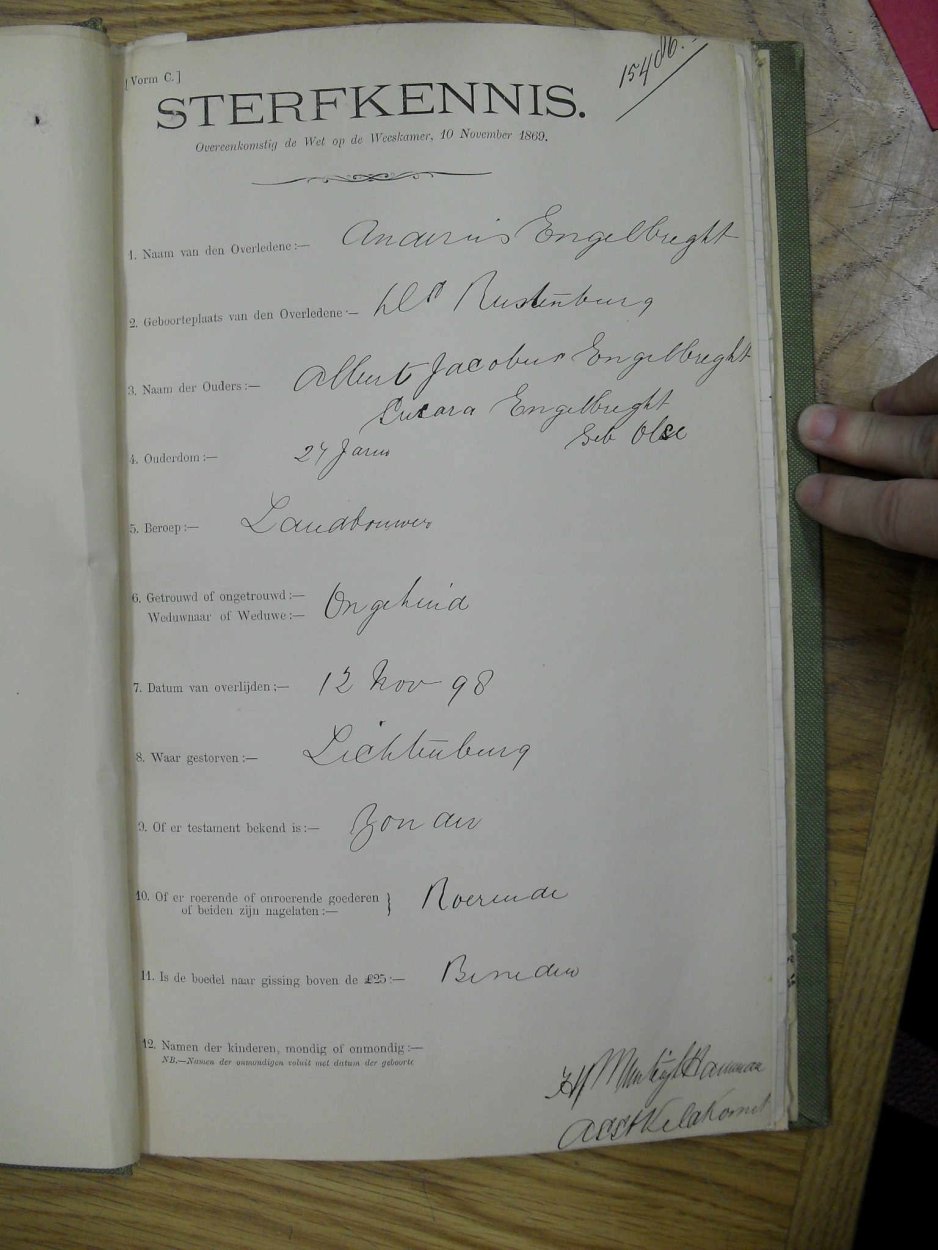 [Vorm C.]
15406.
STERFKENNIS.
Overeenkomstig de Wet op de Weeskamer, 10 November 1869.
1. Naam van den Overledene:— Andries Engelbreght
2. Geboorteplaats van den Overledene:— Dist Rustenburg
3. Naam der Ouders:— Albert Jacobus Engelbreght
Engelbreght
4. Ouderdom:— 27 Jaren Geb
5. Beroep:— Landbouwer
6. Getrouwd of ongetrouwd:—
Weduwnaar of Weduwe:— Ongehuid
7. Datum van overlijden:— 12 Nov 98
8. Waar gestorven:— Lichtenburg
9. Of er testament bekend is:— Zonder
10. Of er roerende of onroerende goederen
of beiden zijn nagelaten:— } Roerende
11. Is de boedel naar gissing boven de £25:— Beneden
12. Namen der kinderen, mondig of onmondig:—
NB.—Namen der onmondigen voluit met datum der geboorte